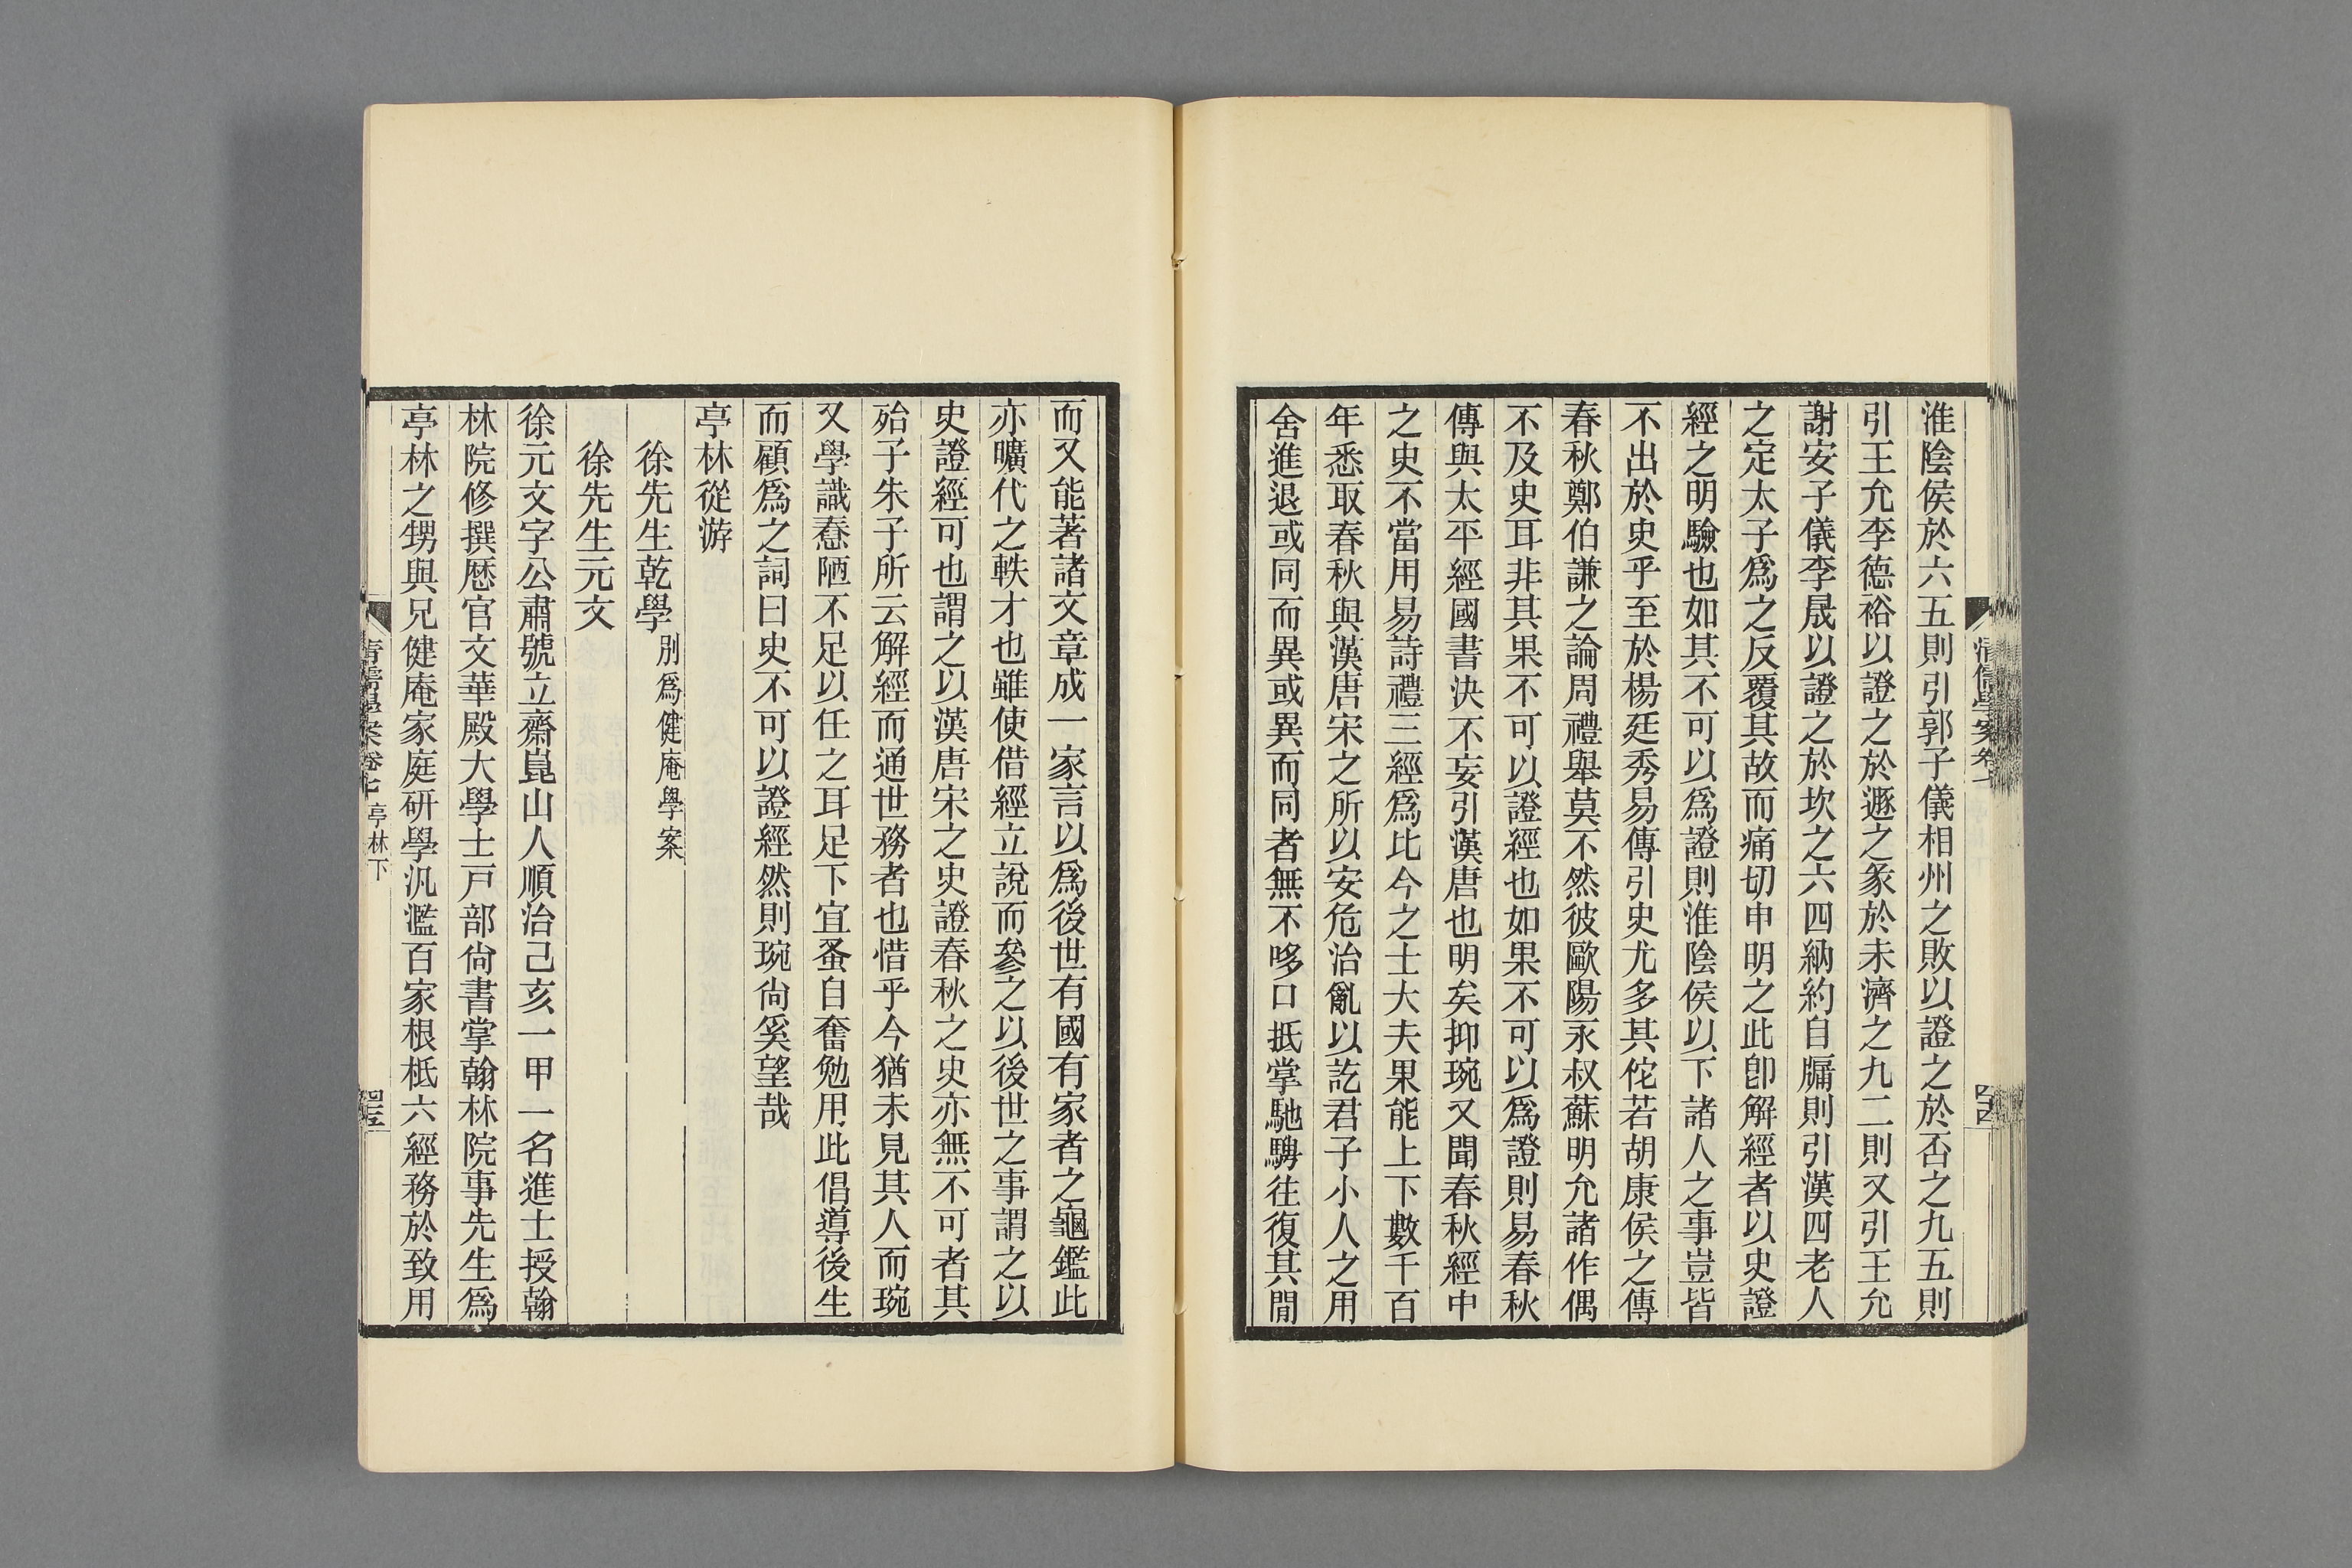 淮陰侯於六五則引郭子儀相州之敗以證之於否之九五則
引王允李德裕以證之於遯之彖於未濟之九二則又引王允
謝安子儀李晟以證之於坎之六四納約自牖則引漢四老人
之定太子爲之反覆其故而痛切申明之此卽解經者以史證
經之明驗也如其不可以爲證則淮陰侯以下諸人之事豈皆
不出於史乎至於楊廷秀易傳引史尤多其佗若胡康侯之傳
春秋鄭伯謙之論周禮舉莫不然彼歐陽永叔蘇明允諸作偶
不及史耳非其果不可以證經也如果不可以爲證則易春秋
傳與太平經國書決不妄引漢唐也明矣抑琬又聞春秋經中
之史不當用易詩禮三經爲比今之士大夫果能上下數千百
年悉取春秋與漢唐宋之所以安危治亂以訖君子小人之用
舍進退或同而異或異而同者無不哆口抵掌馳騁往復其閒
清儒學案卷七
而又能著諸文章成一家言以爲後世有國有家者之龜鑑此
亦曠代之軼才也雖使借經立說而參之以後世之事謂之以
史證經可也謂之以漢唐宋之史證春秋之史亦無不可者其
殆子朱子所云解經而通世務者也惜乎今猶未見其人而琬
又學識惷陋不足以任之耳足下宜蚤自奮勉用此倡導後生
而顧爲之詞曰史不可以證經然則琬尙奚望哉
亭林從游
徐先生乾學 別爲健庵學案
徐先生元文
徐元文字公肅號立齋崑山人順治己亥一甲一名進士授翰
林院修撰歷官文華殿大學士戸部尙書掌翰林院事先生爲
亭林之甥與兄健庵家庭研學汎濫百家根柢六經務於致用
清儒學案卷七 亭林下